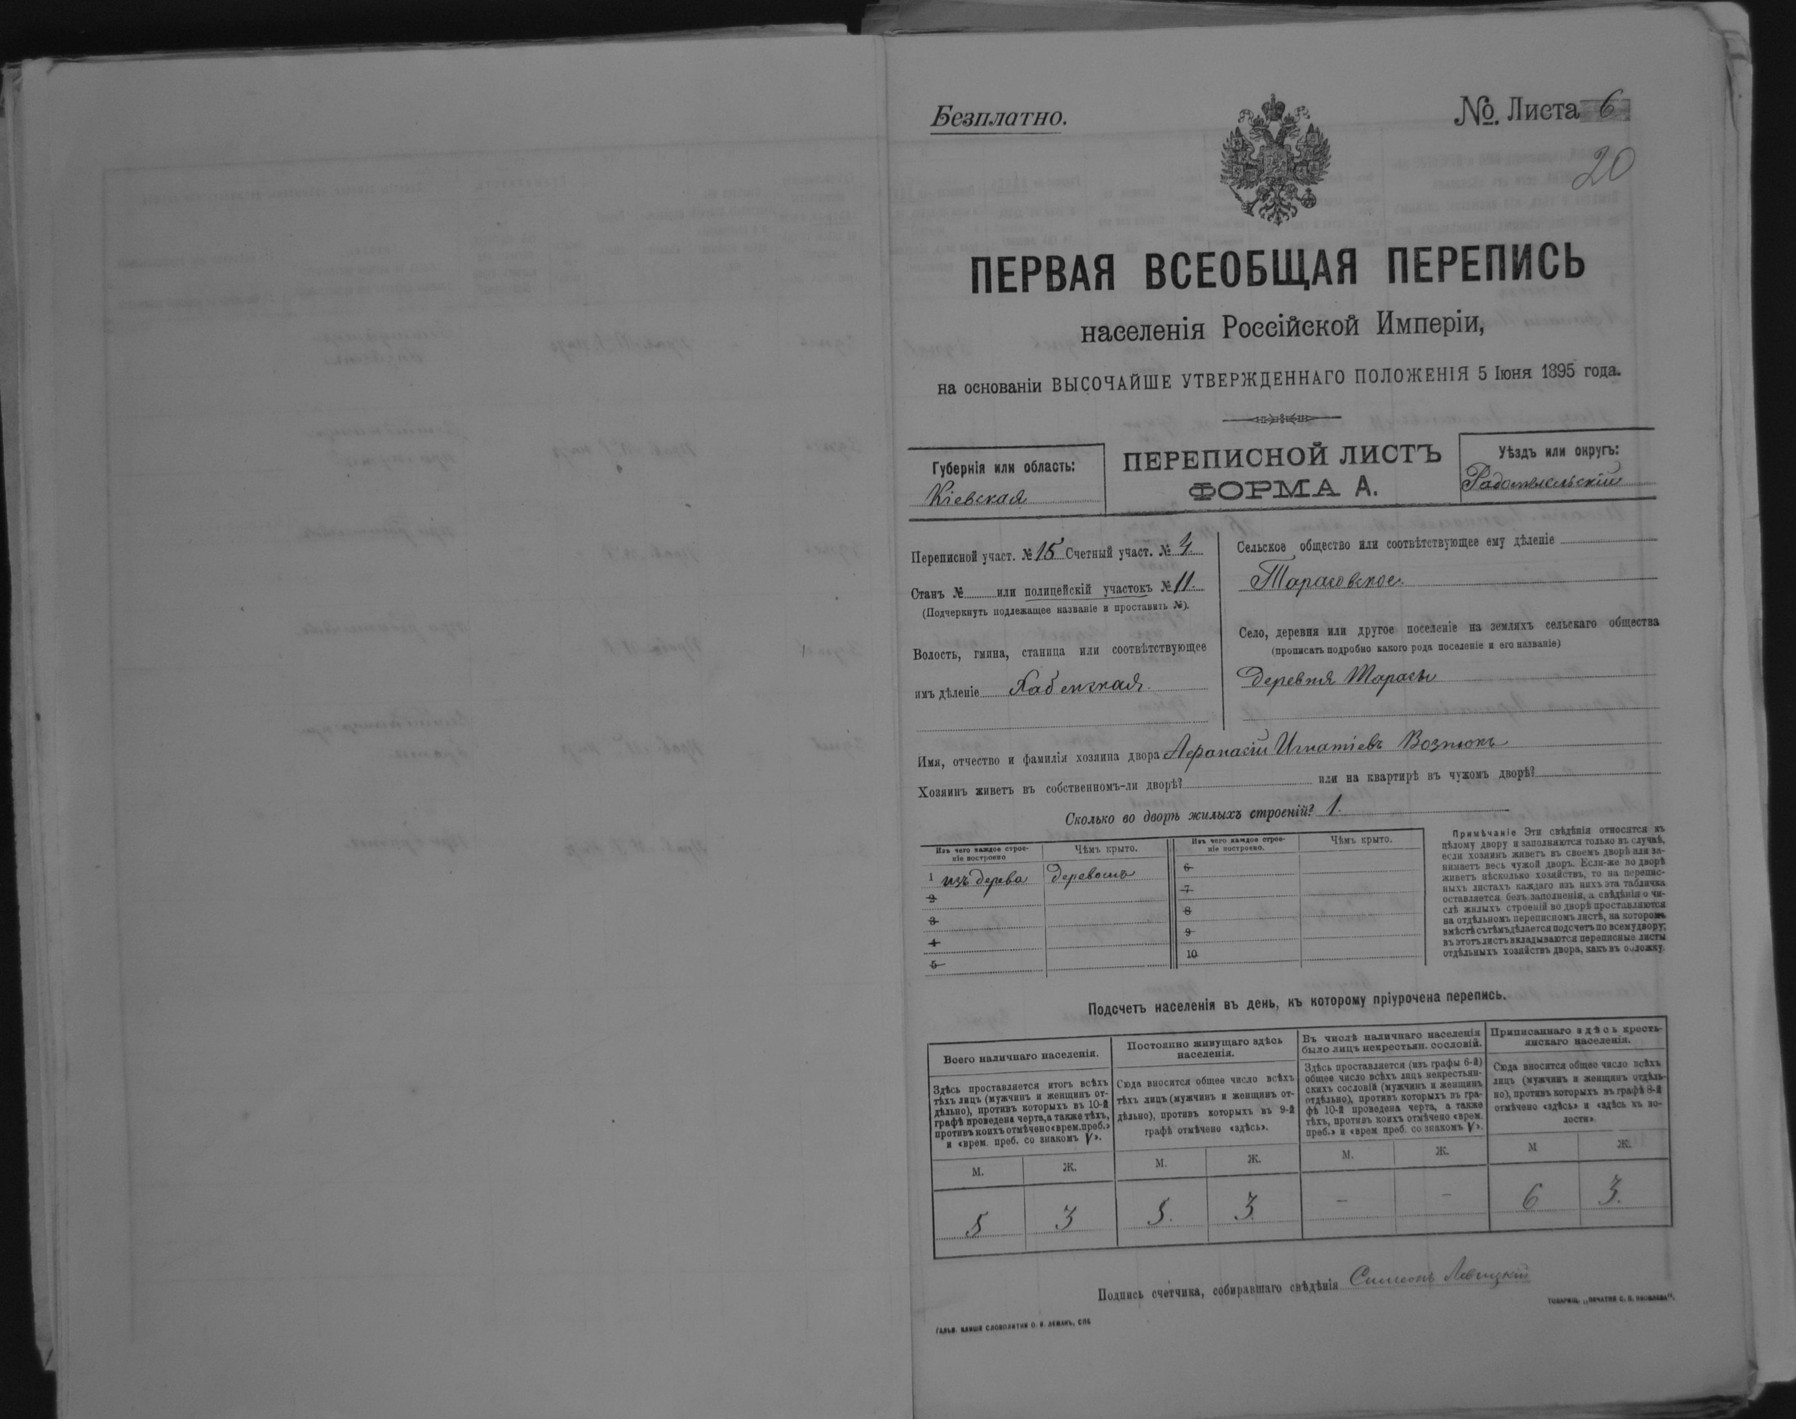 Безплатно.
№. Листа 6
20
ПЕРВАЯ ВСЕОБЩАЯ ПЕРЕПИСЬ
населенія Россійской Имперіи,
на основаніи ВЫСОЧАЙШЕ УТВЕРЖДЕННАГО ПОЛОЖЕНІЯ 5 Іюня 1895 года.
Губернія или область:
Кіевская
ПЕРЕПИСНОЙ ЛИСТЪ
ФОРМА А.
Уѣздъ или округъ:
Радомысльскій
Переписной участ. № 15 Счетный участ. № 4.
Станъ № или полицейскій участокъ № 11.
(Подчеркнуть подлежащее названіе и проставить №).
Волость, гмина, станица или соотвѣтствующее
имъ дѣленіе Хабенская.
Сельское общество или соотвѣтствующее ему дѣленіе
Тарасовское.
Село, деревня или другое поселеніе на земляхъ сельскаго общества
(прописать подробно какого рода поселеніе и его названіе)
Деревня Тарасы
Имя, отчество и фамилія хозяина двора Афанасій Игнатіевъ Вознюкъ
Хозяинъ живетъ въ собственномъ-ли дворѣ? или на квартирѣ въ чужомъ дворѣ?
Сколько во дворѣ жилыхъ строеній? 1.
Изъ чего каждое строе-
ніе построено
Чѣмъ крыто.
Изъ чего каждое строе-
ніе построено.
Чѣмъ крыто.
1 изъ дерева Деревомъ
2
3
4
5
6
7
8
9
10
Примѣчаніе Эти свѣдѣнія относятся къ
цѣлому двору и заполняются только въ случаѣ,
если хозяинъ живетъ въ своемъ дворѣ или за-
нимаетъ весь чужой дворъ. Если-же во дворѣ
живетъ нѣсколько хозяйствъ, то на перепис-
ныхъ листахъ каждаго изъ нихъ эта табличка
оставляется безъ заполненія, а свѣдѣнія о чи-
слѣ жилыхъ строеній во дворѣ проставляются
на отдѣльномъ переписномъ листѣ, на которомъ
вмѣстѣ съ тѣмъ дѣлается подсчетъ по всему двору;
въ этотъ листъ вкладываются переписные листы
отдѣльныхъ хозяйствъ двора, какъ въ обложку.
Подсчетъ населенія въ день, къ которому пріурочена перепись.
Всего наличнаго населенія.
Здѣсь проставляется итогъ всѣхъ
тѣхъ лицъ (мужчинъ и женщинъ от-
дѣльно), противъ которыхъ въ 10-й
графѣ проведена черта, а также тѣхъ,
противъ коихъ отмѣчено «врем. преб.»
и «врем. преб. со знакомъ V».
Постоянно живущаго здѣсь
населенія.
Сюда вносится общее число всѣхъ
тѣхъ лицъ (мужчинъ и женщинъ от-
дѣльно), противъ которыхъ въ 9-й
графѣ отмѣчено «здѣсь».
Въ числѣ наличнаго населенія
было лицъ некрестьян. сословій.
Здѣсь проставляется (изъ графы 6-й)
общее число всѣхъ лицъ некрестьян-
скихъ сословій (мужчинъ и женщинъ
отдѣльно), противъ которыхъ въ гра-
фѣ 10-й проведена черта, а также
тѣхъ, противъ коихъ отмѣчено «врем.
преб.» и «врем. преб. со знакомъ V».
Приписаннаго здѣсь кресть-
янскаго населенія.
Сюда вносится общее число всѣхъ
лицъ (мужчинъ и женщинъ отдѣль-
но), противъ которыхъ въ графѣ 8-й
отмѣчено «здѣсь» и «здѣсь въ во-
лости».
М. Ж. М. Ж. М. Ж. М Ж.
5 3 5. 3. – – 6 3.
Подпись счетчика, собиравшаго свѣдѣнія Симонъ Левицкій